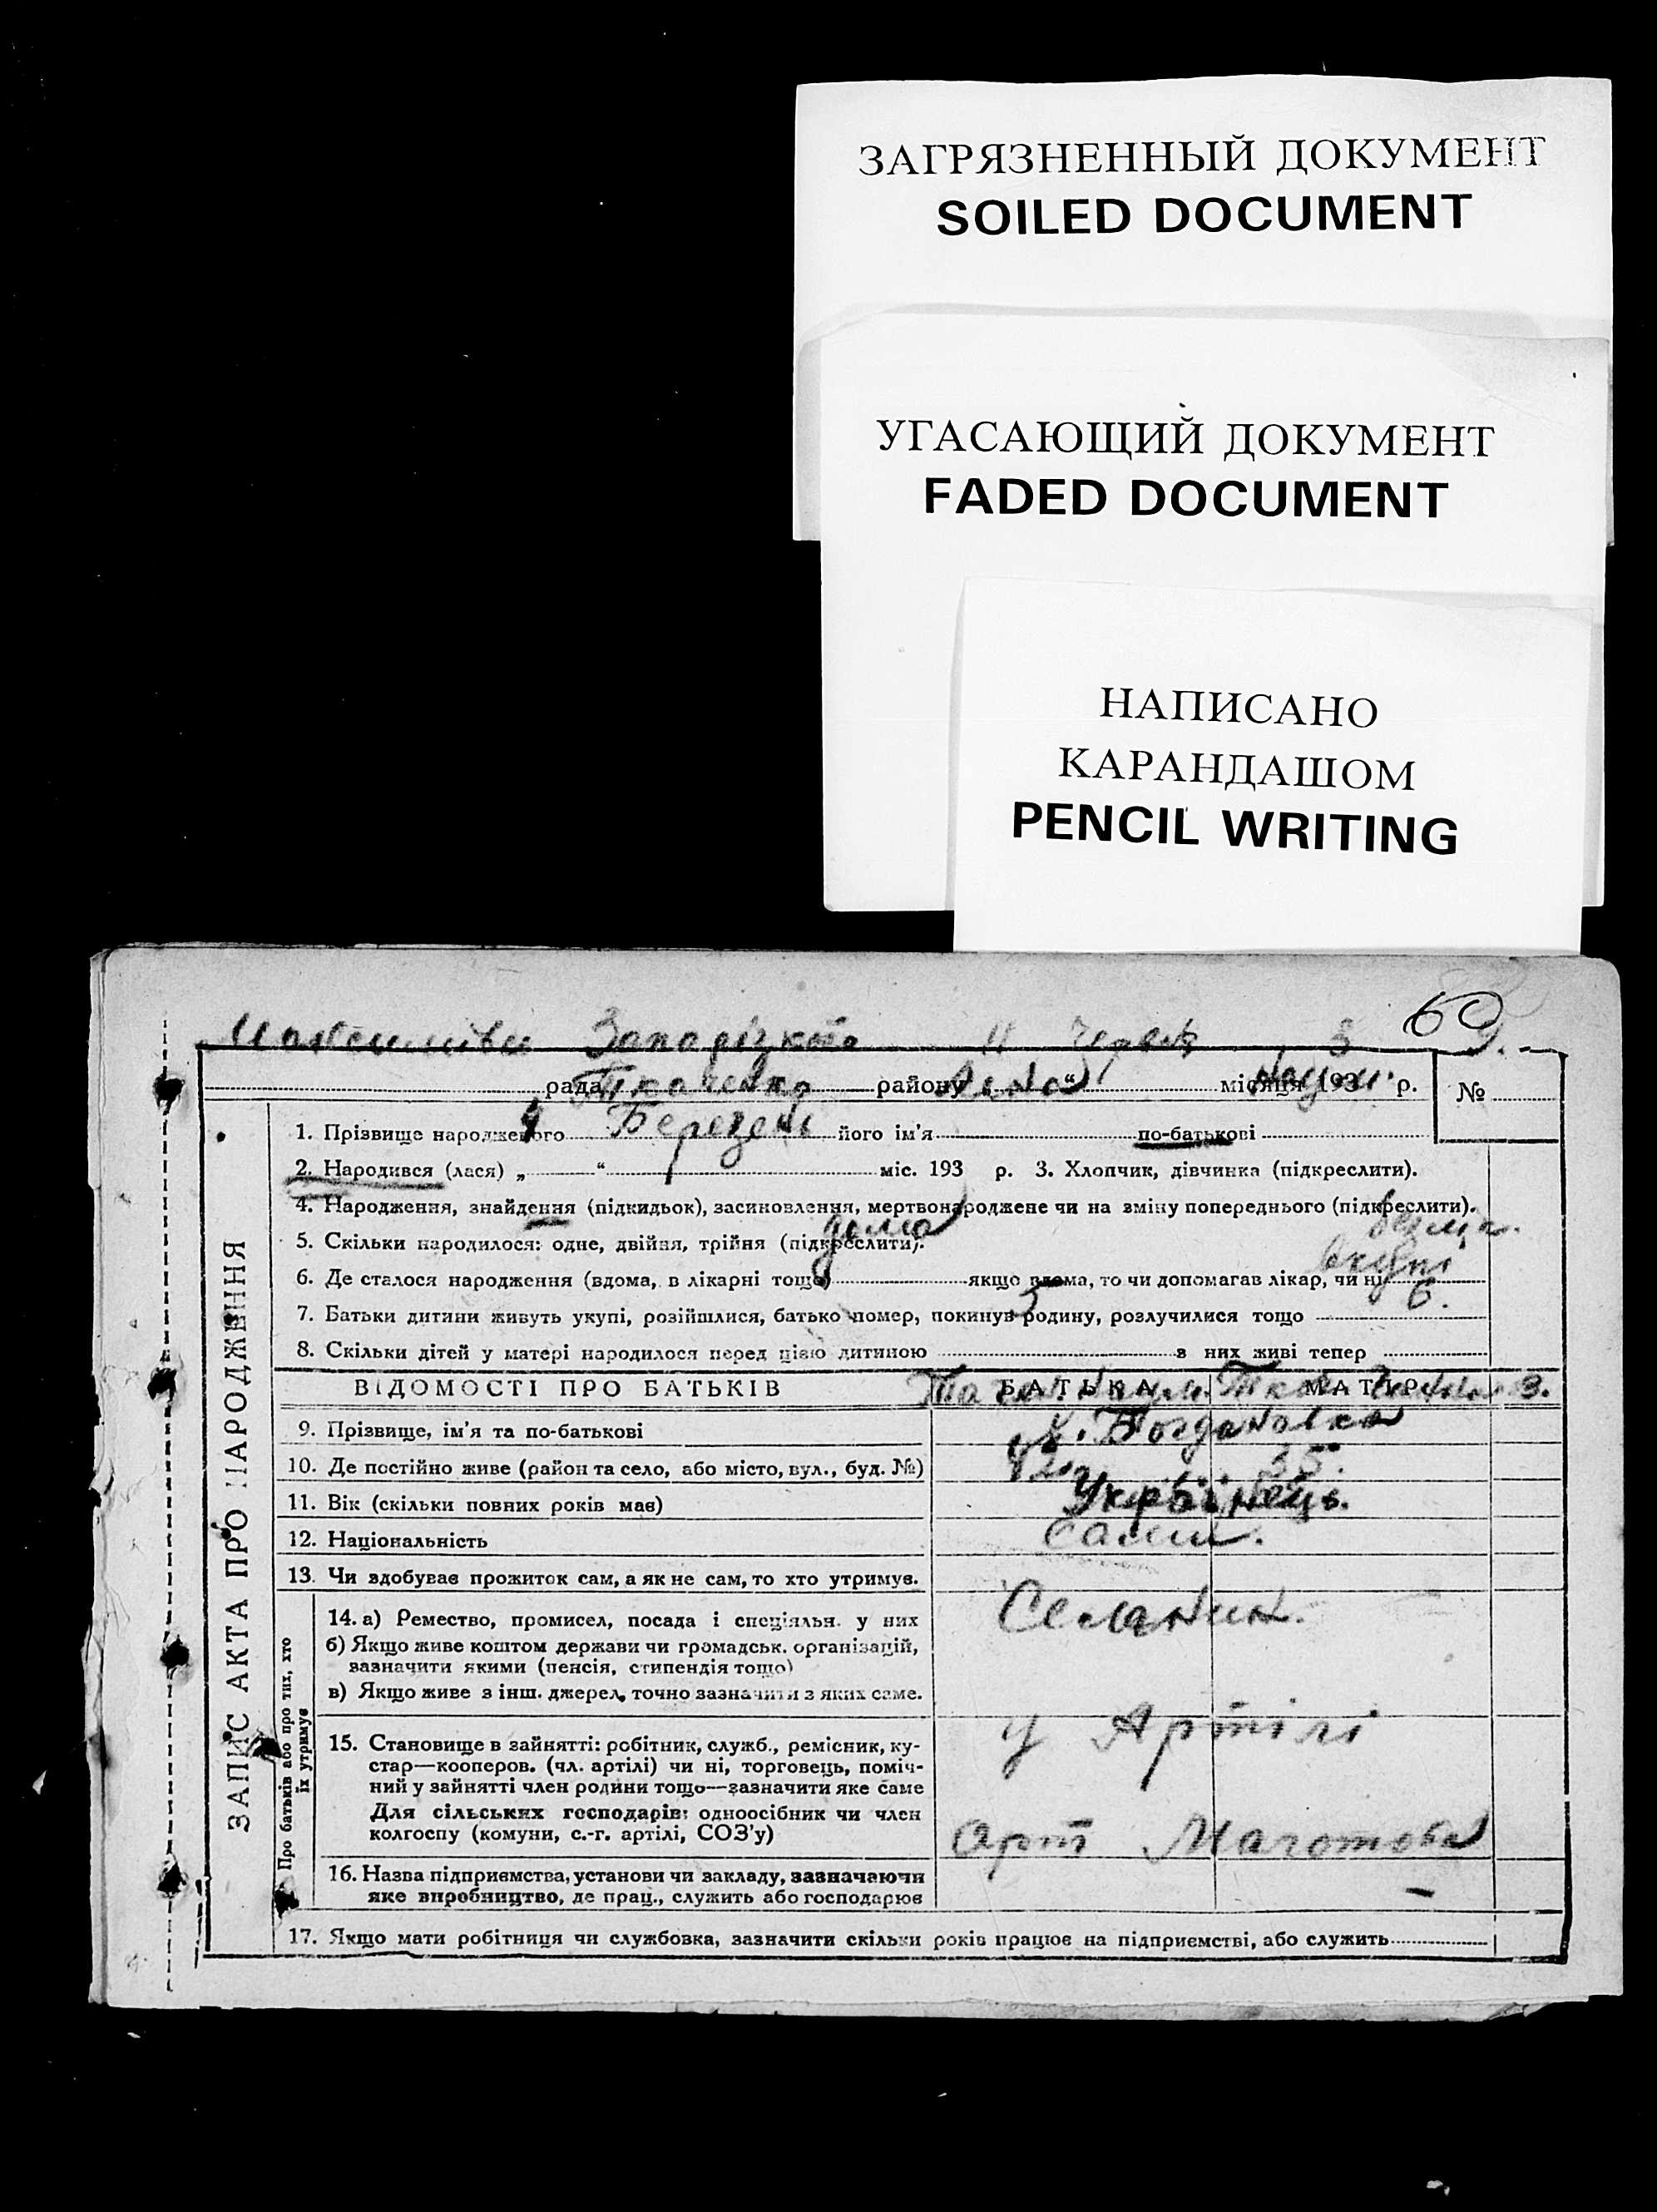 ЗАГРЯЗНЕННЫЙ ДОКУМЕНТ
SOILED DOCUMENT
УГАСАЮЩИЙ ДОКУМЕНТ
FADED DOCUMENT
НАПИСАНО
КАРАНДАШОМ
PENCIL WRITING
60
рада Ткаченко району місяця 193 р. №
ЗАПИС АКТА ПРО НАРОДЖЕННЯ
1. Прізвище народженого його ім'я по-батькові
4 Березень
2. Народився (лася) „ “ міс. 193 р. 3. Хлопчик, дівчинка (підкреслити).
4. Народження, знайдення (підкидьок), засиновлення, мертвонароджене чи на зміну попереднього (підкреслити).
5. Скільки народилося: одне, двійня, трійня (підкреслити).
дома
6. Де сталося народження (вдома, в лікарні тощо) якщо вдома, то чи допомагав лікар, чи ні
вкупі
7. Батьки дитини живуть укупі, розійшлися, батько помер, покинув родину, розлучилися тощо
6.
8. Скільки дітей у матері народилося перед цією дитиною в них живі тепер
ВІДОМОСТІ ПРО БАТЬКІВ БАТЬКА МАТІР
9. Прізвище, ім'я та по-батькові
х. Богдановка
10. Де постійно живе (район та село, або місто, вул., буд. №)
42. 35.
11. Вік (скільки повних років має)
Українець.
12. Національність
сами.
13. Чи здобуває прожиток сам, а як не сам, то хто утримує.
Про батьків або про тих, хто їх утримує
14. а) Ремество, промисел, посада і спеціяльн. у них
Селянин.
б) Якщо живе коштом держави чи громадськ. організацій,
зазначити якими (пенсія, стипендія тощо)
в) Якщо живе з інш. джерел, точно зазначити з яких саме.
у Артілі
15. Становище в зайнятті: робітник, служб., ремісник, ку-
стар—кооперов. (чл. артілі) чи ні, торговець, поміч-
ний у зайнятті член родини тощо—зазначити яке саме
Для сільських господарів: одноосібник чи член
колгоспу (комуни, с.-г. артілі, СОЗ'у)
Арт
16. Назва підприємства, установи чи закладу, зазначаючи
яке виробництво, де прац., служить або господарює
17. Якщо мати робітниця чи службовка, зазначити скільки років працює на підприємстві, або служить